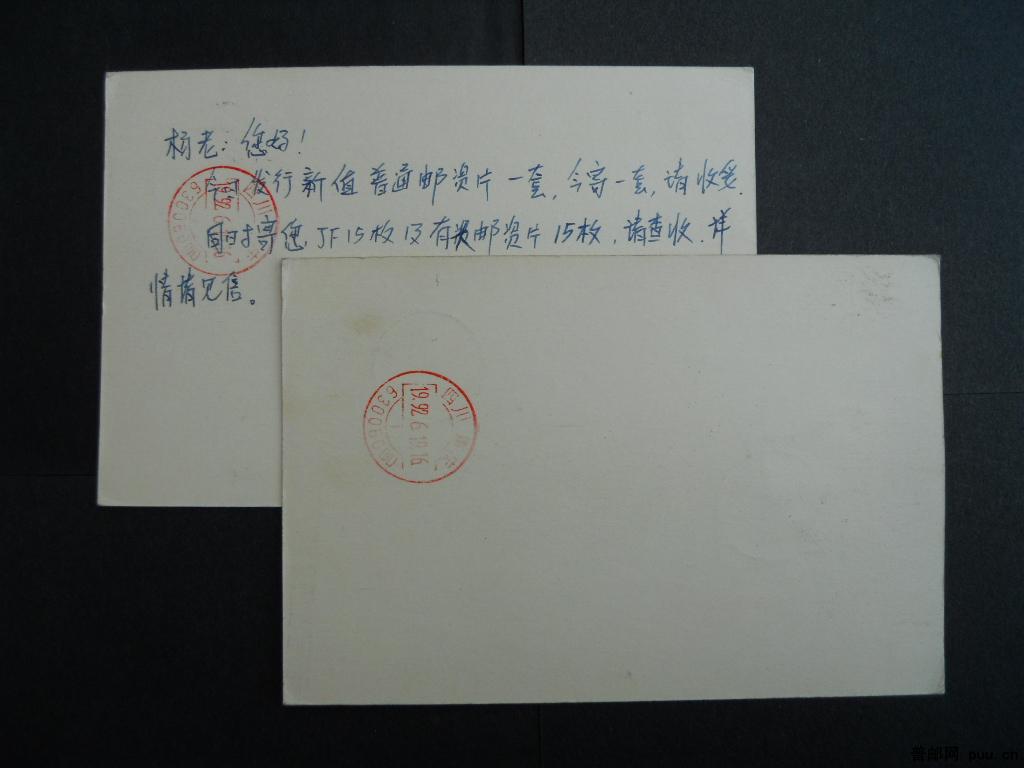 杨老：您好！
今日发行新值普通邮资片一套，今寄一套，请收妥.
同时寄您，JF15枚及有奖邮资片15枚，请查收.详
情请见信。
四川
19.92.6
63006
四川
19.92.6.19.16
63006
普邮网 puu.cn